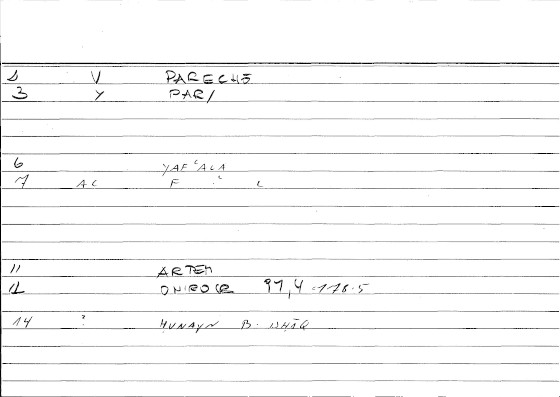 V PARECHĒ
3 Y PAR/
6 YAFʿALA
7 AC F L
11 ARTEM
12 ONIROCR 97,4-178.5
14 ? HUNAYN B. ISHĀQ